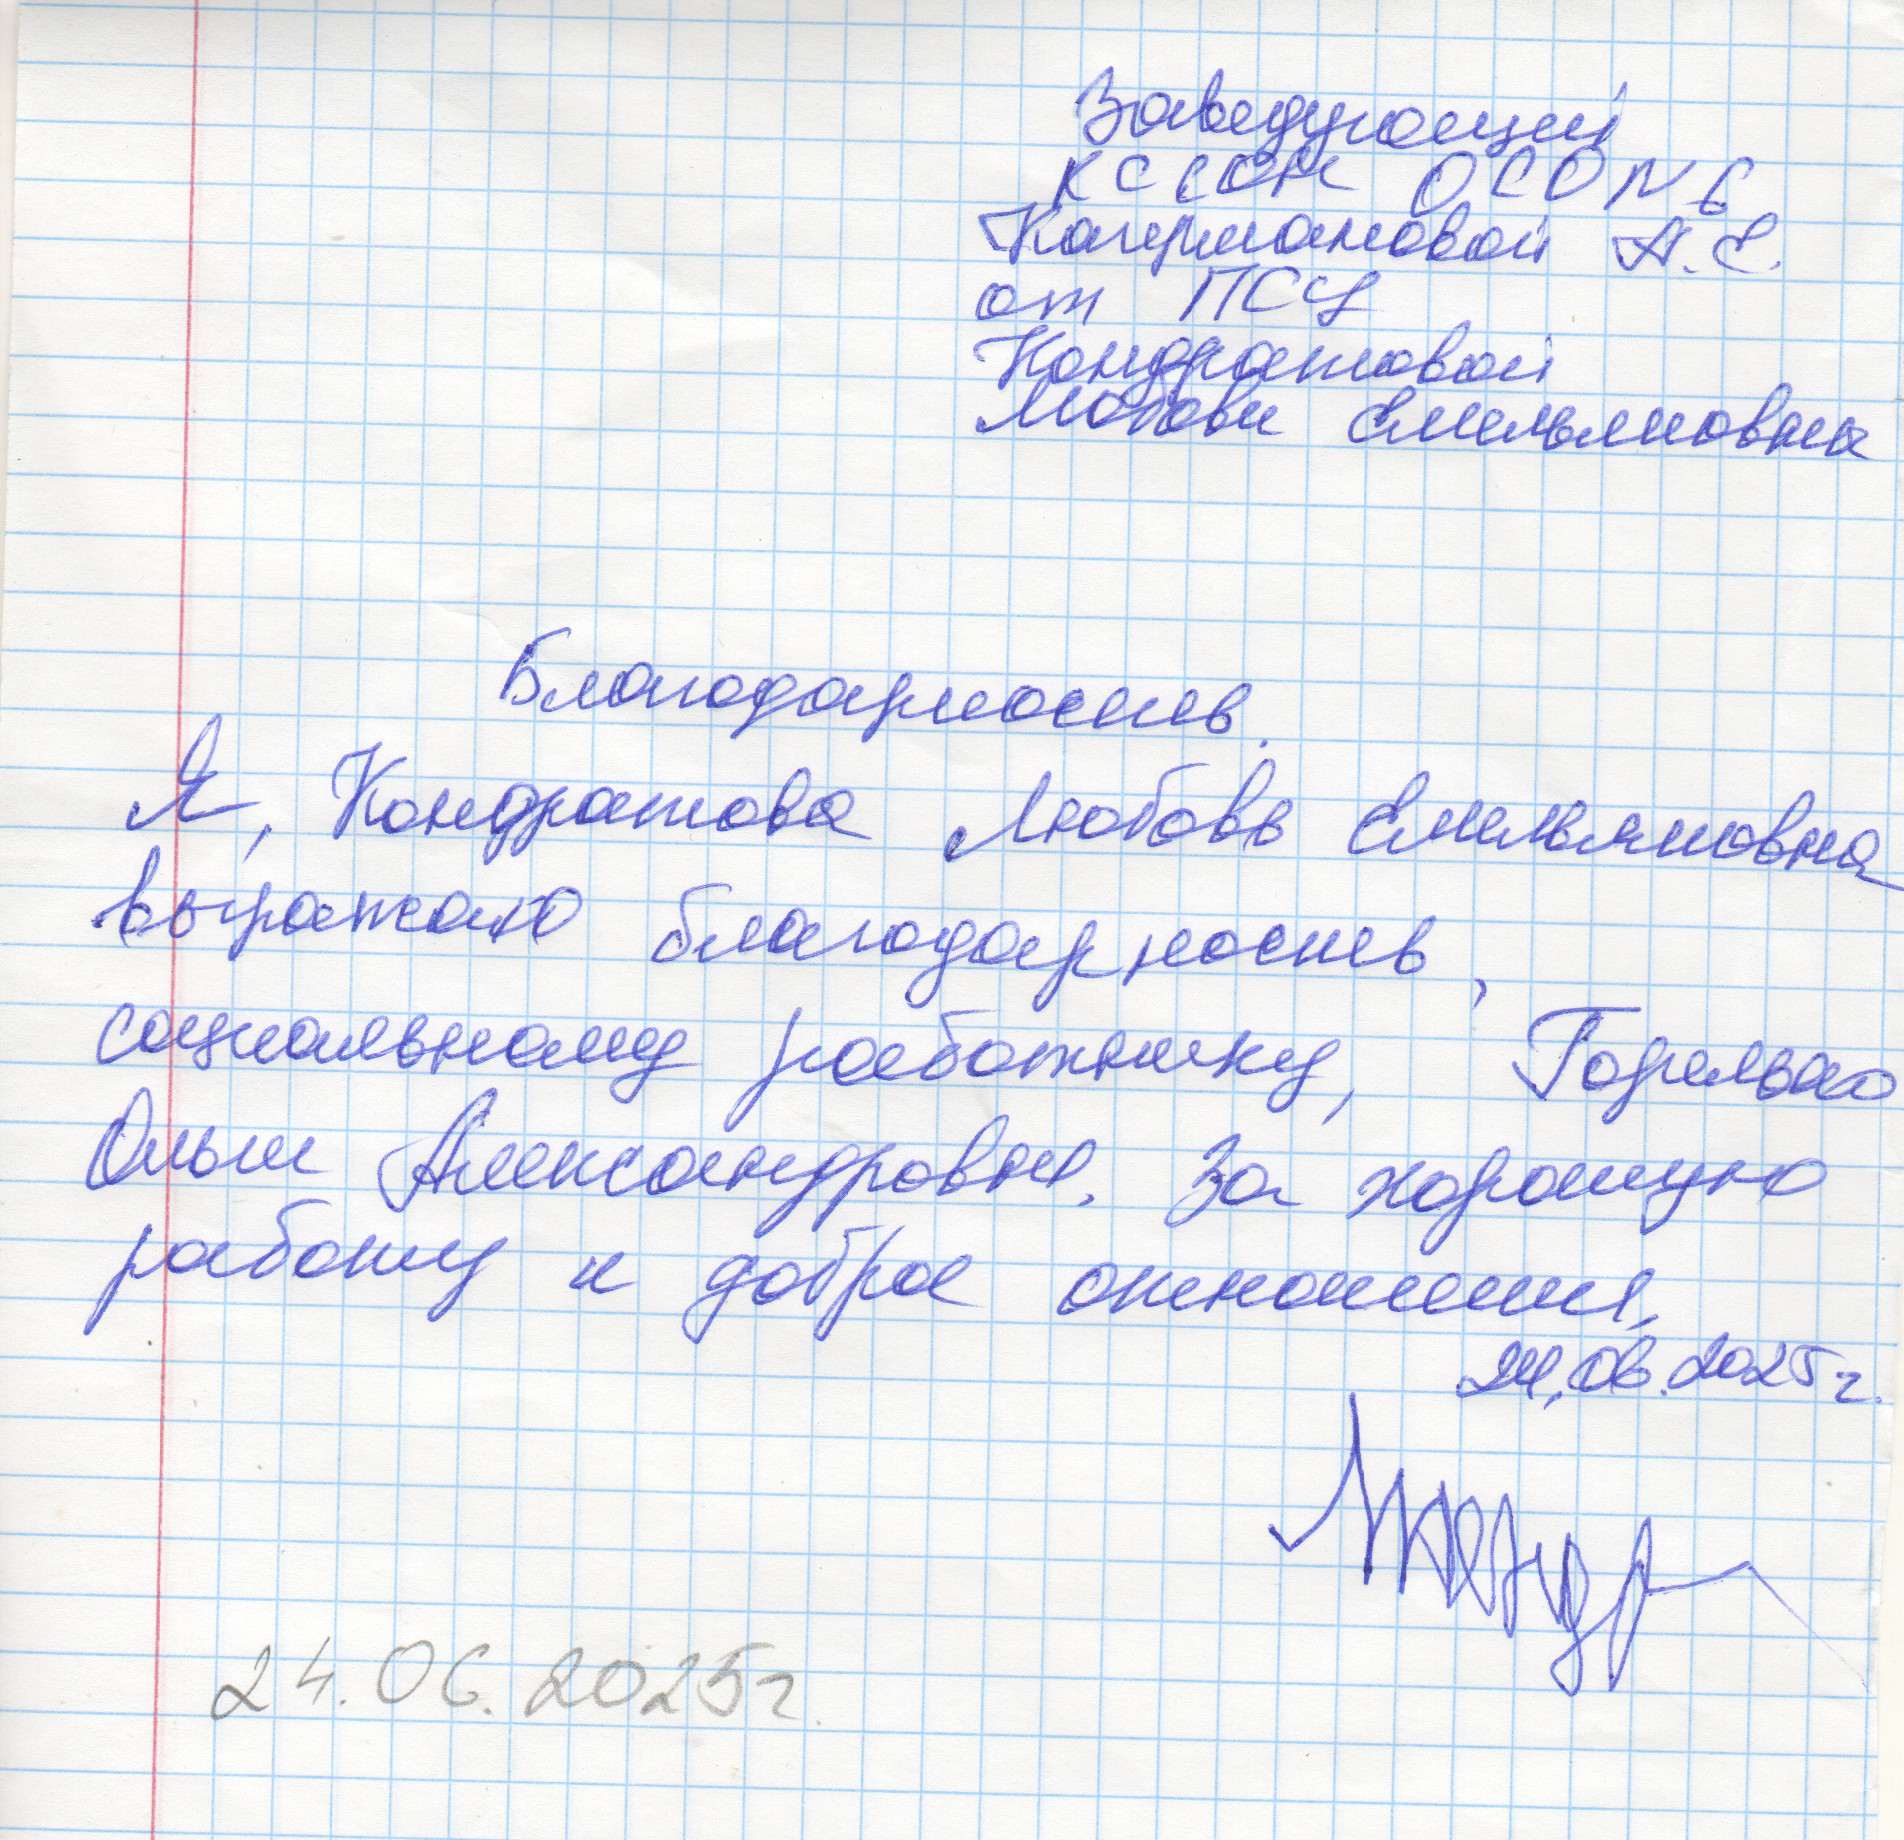 Заведующей
КССОН ОСО N 6
Кагермановой А.Е.
от ПСУ
Кондратовой
Любови Емельяновны
Благодарность.
Я, Кондратова Любовь Емельяновна
выражаю благодарность,
социальному работнику, Горелько
Ольги Александровне. За хорошую
работу и доброе отношения.
24.06.2025г.
24.06.2025г.